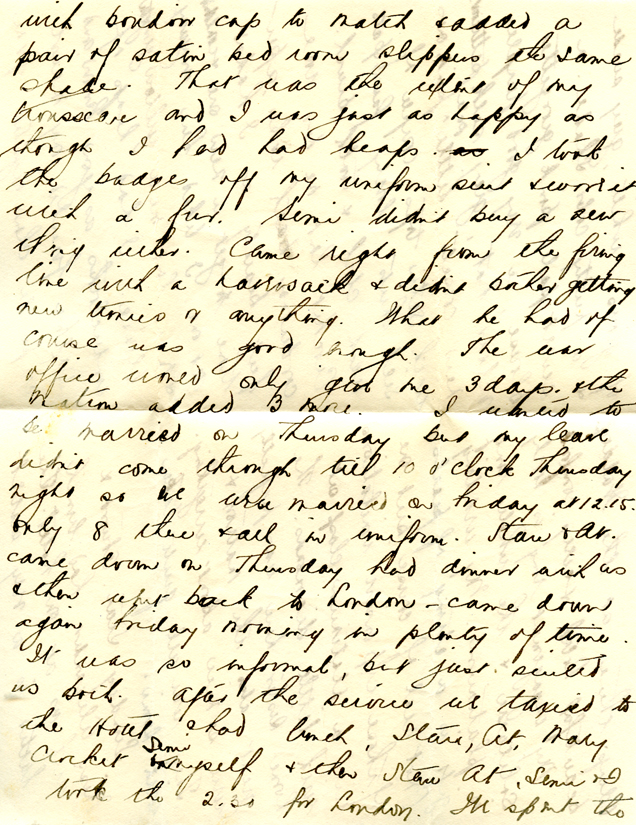 with boudoir cap to match & added a
pair of satin bed room slippers the same
shade. That was the extent of my
trousseau and I was just as happy as
though I had had heaps. as I took
the badges off my uniform suit & wore it
with a fur. Semi didn't buy a new
thing either. Came right from the firing
line with a haversack & didnt bother getting
new tunics or anything. What he had of
course was good enough. The war
office would only give me 3 days. & the
matron added 3 more. I wanted to
be married on Thursday but my leave
didn't come through till 10 o'clock Thursday
night so we were married on Friday at 12.15.
only 8 there & all in uniform. Stan & At.
came down on Thursday had dinner with us
& then went back to London - came down
again Friday morning in plenty of time.
It was so informal, but just suited
us both. After the service we taxied to
the Hotel, & had lunch, Stan, At, Mary
Crocket Semi & myself & then Stan At, Semi & I
took the 2.30 for London. We spent the